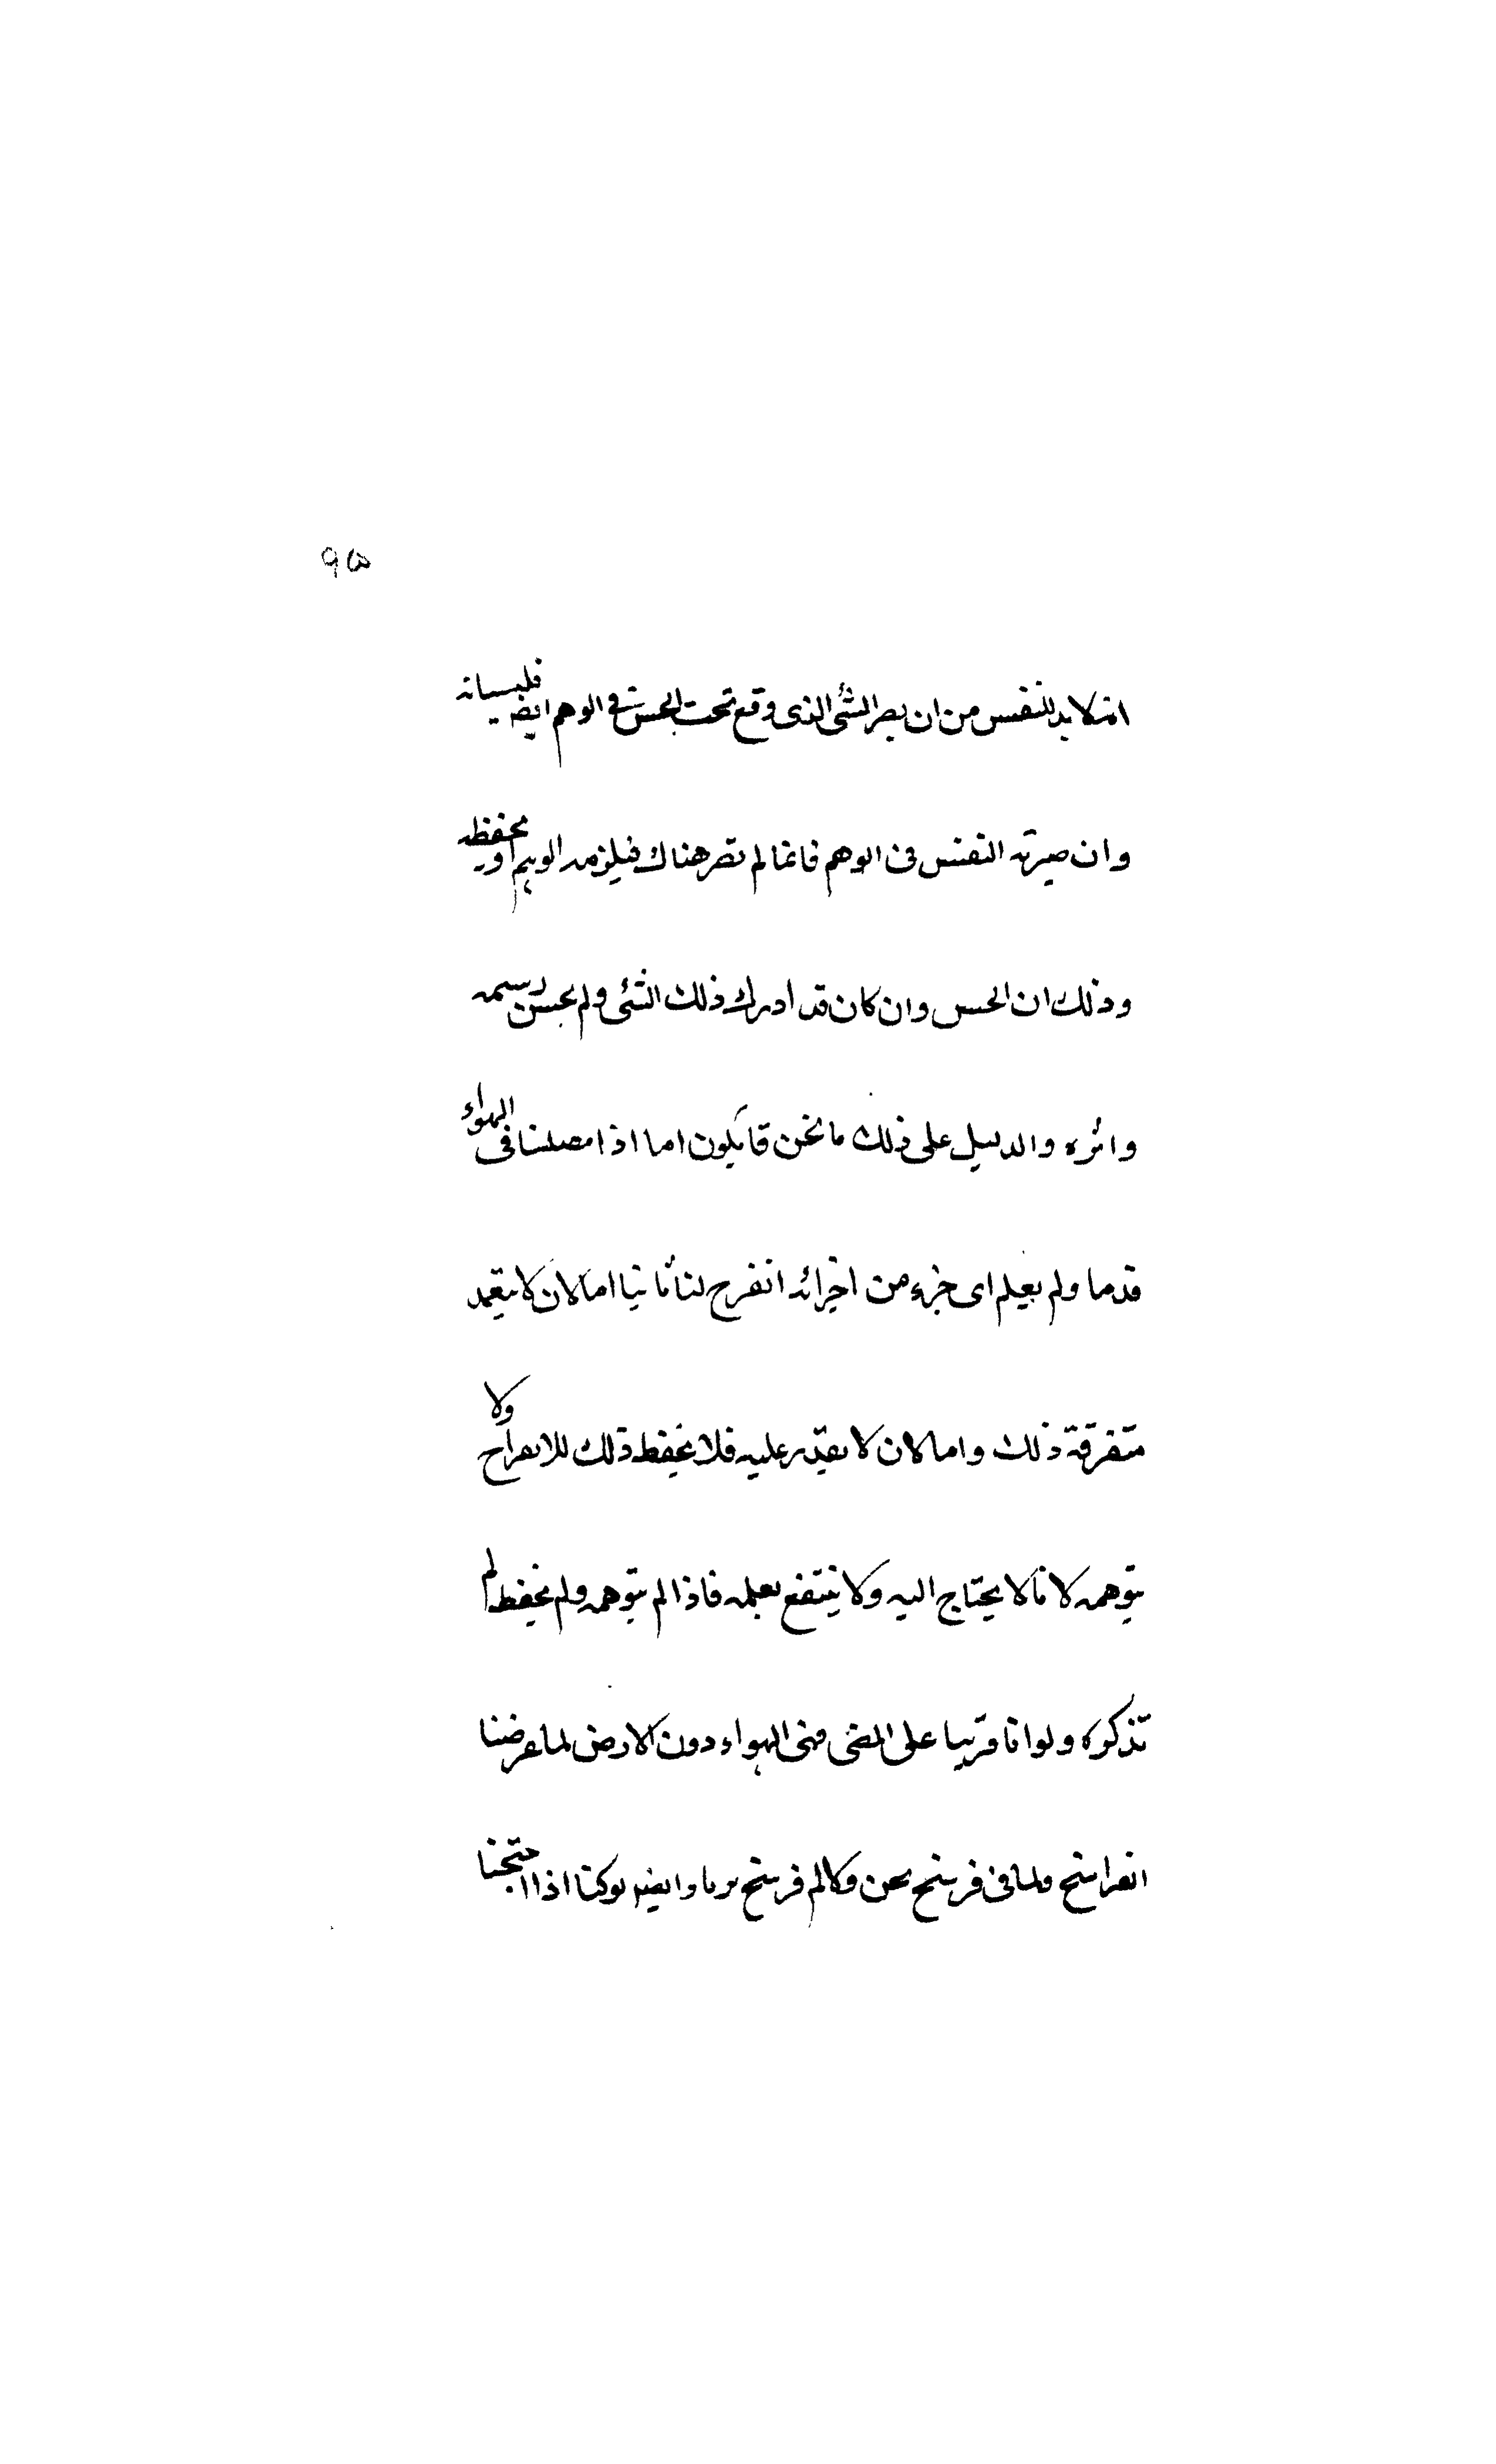 ٩٥
انه لا بد للنفس من ان يصر الشئ الذى وقع تحت الحس فى الوهم ايضا فليس انه
وان صيرته النفس فى الوهم فانما لم تصر هناك فيلزمه الوهم او يحفظه
وذلك ان الحس وان كان قد ادرك ذلك الشئ ولم يحس رسمه
واثره والدليل على ذلك ما نحن قائلون اما اذا فصلنا فى الهواء
قدما ولم يعلم اى جزء من اجزائه انفرج لنا ثانيا اما لان لا يتعمد
متفرقة ذلك واما لان لا يقدر عليه فلا نحفظ ذلك للانفراج ولا
يتوهمه لانا لا يحتاج اليه ولا ينتفع بعلمه فاذا لم يتوهمه ولم يحفظ لم
تذكره ولو انا قربنا على المضى فى الهواء دون الارض لما عرضنا
الفراسخ ولما فى فرسخ نحن وكالم فرسخ وايضا لو كنا اذا احتجنا